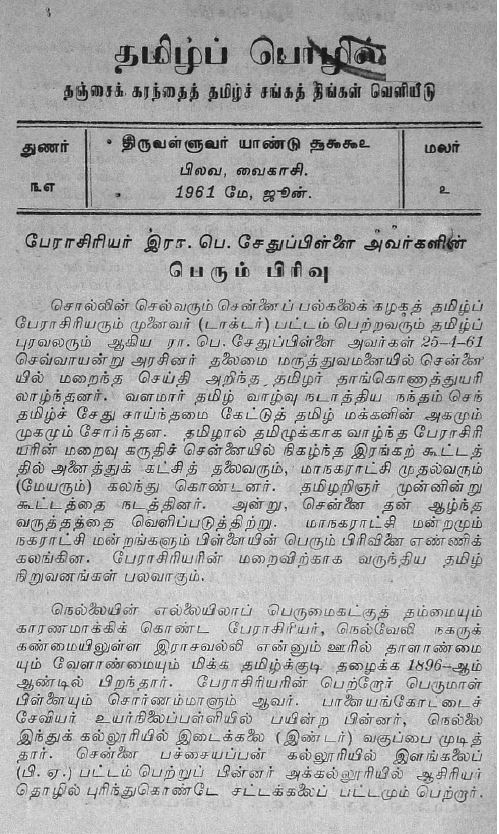 தமிழ்ப் பொழில்
தஞ்சைக் கரந்தைத் தமிழ்ச் சங்கத் திங்கள் வெளியீடு
துணர்
௩௭
திருவள்ளுவர் யாண்டு ௲௯௯௨
பிலவ, வைகாசி.
1961 மே, ஜூன்.
மலர்
௨
பேராசிரியர் இரா. பெ. சேதுப்பிள்ளை அவர்களின்
பெரும் பிரிவு
சொல்லின் செல்வரும் சென்னைப் பல்கலைக் கழகத் தமிழ்ப்
பேராசிரியரும் முனைவர் (டாக்டர்) பட்டம் பெற்றவரும் தமிழ்ப்
புரவலரும் ஆகிய ரா. பெ. சேதுப்பிள்ளை அவர்கள் 25-4-61
செவ்வாயன்று அரசினர் தலைமை மருத்துவமனையில் சென்னை
யில் மறைந்த செய்தி அறிந்த தமிழர் தாங்கொணாத்துயரி
லாழ்ந்தனர். வளமார் தமிழ் வாழ்வு நடாத்திய நந்தம் செந்
தமிழ்ச் சேது சாய்ந்தமை கேட்டுத் தமிழ் மக்களின் அகமும்
முகமும் சோர்ந்தன. தமிழால் தமிழுக்காக வாழ்ந்த பேராசிரி
யரின் மறைவு கருதிச் சென்னையில் நிகழ்ந்த இரங்கற் கூட்டத்
தில் அனைத்துக் கட்சித் தலைவரும், மாநகராட்சி முதல்வரும்
(மேயரும்) கலந்து கொண்டனர். தமிழறிஞர் முன்னின்று
கூட்டத்தை நடத்தினர். அன்று, சென்னை தன் ஆழ்ந்த
வருத்தத்தை வெளிப்படுத்திற்று. மாநகராட்சி மன்றமும்
நகராட்சி மன்றங்களும் பிள்ளையின் பெரும் பிரிவினை எண்ணிக்
கலங்கின. பேராசிரியரின் மறைவிற்காக வருந்திய தமிழ்
நிறுவனங்கள் பலவாகும்.
நெல்லையின் எல்லையிலாப் பெருமைகட்குத் தம்மையும்
காரணமாக்கிக் கொண்ட பேராசிரியர், நெல்வேலி நகருக்
கண்மையிலுள்ள இராசவல்லி என்னும் ஊரில் தாளாண்மை
யும் வேளாண்மையும் மிக்க தமிழ்க்குடி தழைக்க 1896-ஆம்
ஆண்டில் பிறந்தார். பேராசிரியரின் பெற்றோர் பெருமாள்
பிள்ளையும் சொர்ணம்மாளும் ஆவர். பாளையங்கோட்டைச்
சேவியர் உயர்நிலைப்பள்ளியில் பயின்ற பின்னர், நெல்லை
இந்துக் கல்லூரியில் இடைக்கலை (இண்டர்) வகுப்பை முடித்
தார். சென்னை பச்சையப்பன் கல்லூரியில் இளங்கலைப்
(பி. ஏ.) பட்டம் பெற்றுப் பின்னர் அக்கல்லூரியில் ஆசிரியர்
தொழில் புரிந்துகொண்டே சட்டக்கலைப் பட்டமும் பெற்றார்.